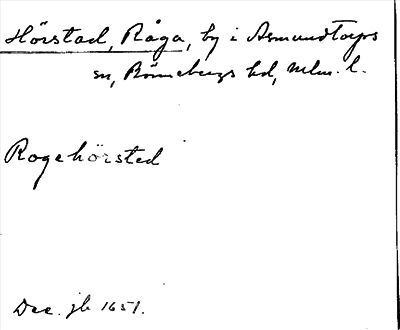 Hörstad, Råga, by i Asmundtorps
sn, Rönnebergs hd, Mlm. l.
Rogehörsted
Dec. jb 1651.